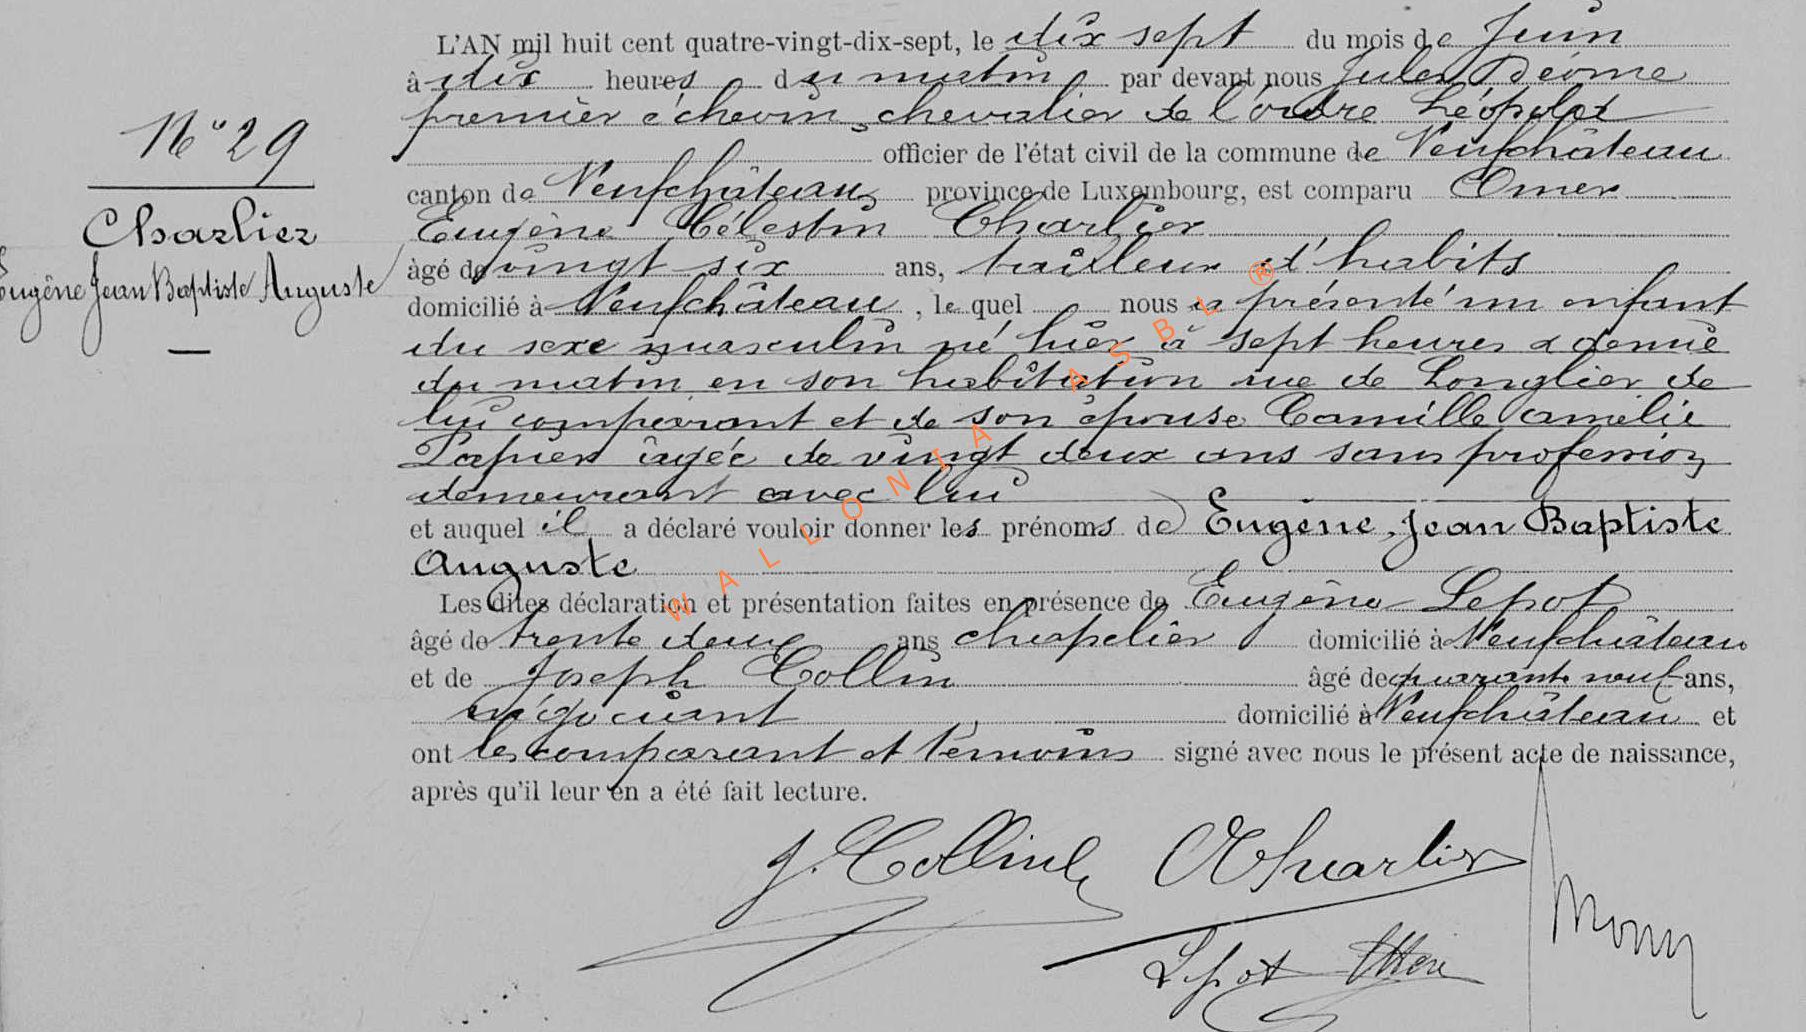 N° 29
Charlier
Eugène Jean Baptiste Auguste
L'AN mil huit cent quatre-vingt-dix-sept, le dix sept du mois de Juin
à dix heures du matin par devant nous Jules Déome
premier échevin, chevalier de l'ordre Léopold
officier de l'état civil de la commune de Neufchâteau
canton de Neufchâteau, province de Luxembourg, est comparu Omer
Eugène Célestin Charlier
âgé de vingt six ans, tailleur d'habits
domicilié à Neufchâteau, le quel nous a présenté un enfant
du sexe masculin né hier à sept heures & demie
du matin en son habitation rue de Longlier de
lui comparant et de son épouse Camille Amélie
Papier âgée de vingt deux ans sans profession
demeurant avec lui
et auquel il a déclaré vouloir donner les prénoms de Eugène, Jean Baptiste
Auguste
Les dites déclaration et présentation faites en présence de Eugène Lepot
âgé de trente deux ans chapelier domicilié à Neufchâteau
et de Joseph Collin âgé de quarante neuf ans,
négociant domicilié à Neufchâteau et
ont les comparant et témoins signé avec nous le présent acte de naissance,
après qu'il leur en a été fait lecture.
J. Collin O Charlier
Lepot
WALLONIA ASBL ®